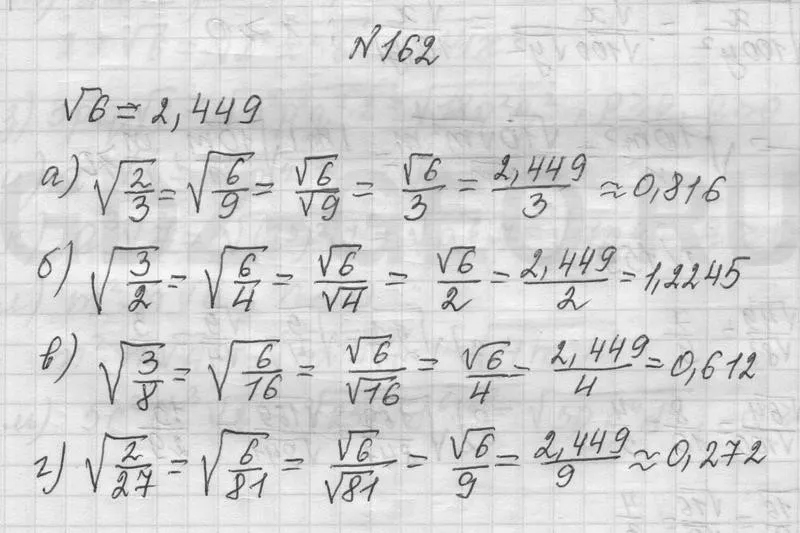 №162
√6 = 2,449
а) √(2/3) = √(6/9) = √6/√9 = √6/3 = 2,449/3 ≈ 0,816
б) √(3/2) = √(6/4) = √6/√4 = √6/2 = 2,449/2 = 1,2245
в) √(3/8) = √(6/16) = √6/√16 = √6/4 = 2,449/4 = 0,612
г) √(2/27) = √(6/81) = √6/√81 = √6/9 = 2,449/9 ≈ 0,272